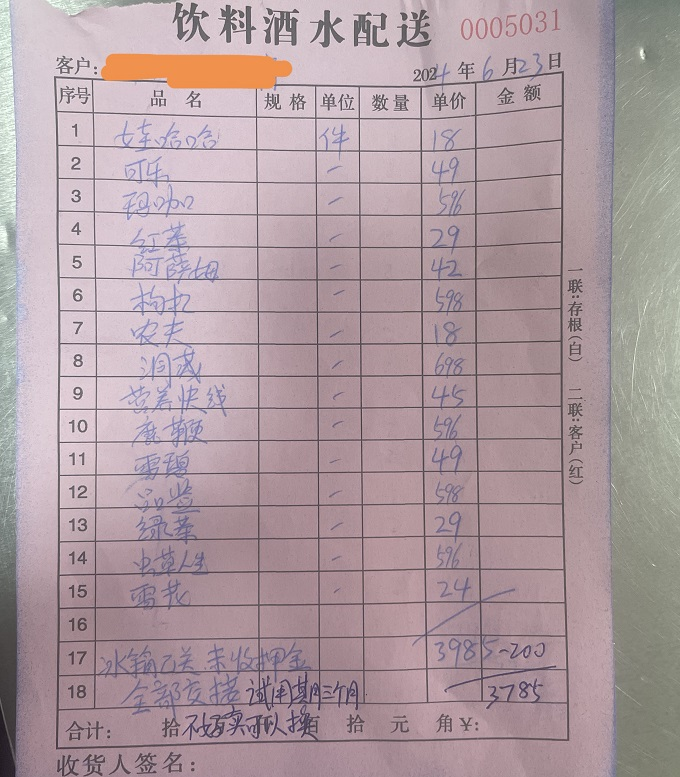 饮料酒水配送 0005031
客户: 2024年6月23日
序号 品名 规格 单位 数量 单价 金额
1 娃哈哈 件 18
2 可乐 一 49
3 玛咖 一 596
4 红茶 一 29
5 阿萨姆 一 42
6 枸杞 一 598
7 农夫 一 18
8 洞藏 一 698
9 营养快线 一 45
10 鹿鞭 一 596
11 雪碧 一 49
12 品鉴 一 598
13 绿茶 一 29
14 虫草人生 一 596
15 雪花 一 24
16
17 冰箱已送 未收押金 3985-200
18 全部交接 试用期三个月 3785
合计: 拾 不好卖可以换 佰 拾 元 角 ¥:
收货人签名:
一联:存根(白) 二联:客户(红)